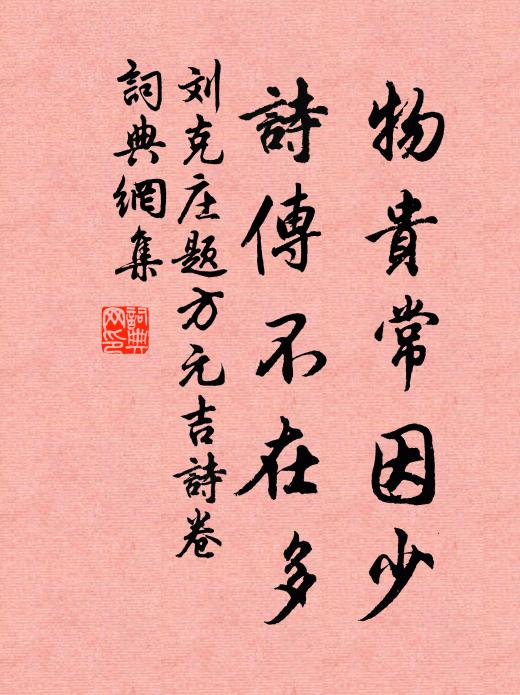 物貴常因少
詩傳不在多
刘克庄题方元吉詩卷
詞典網集
詞典网印